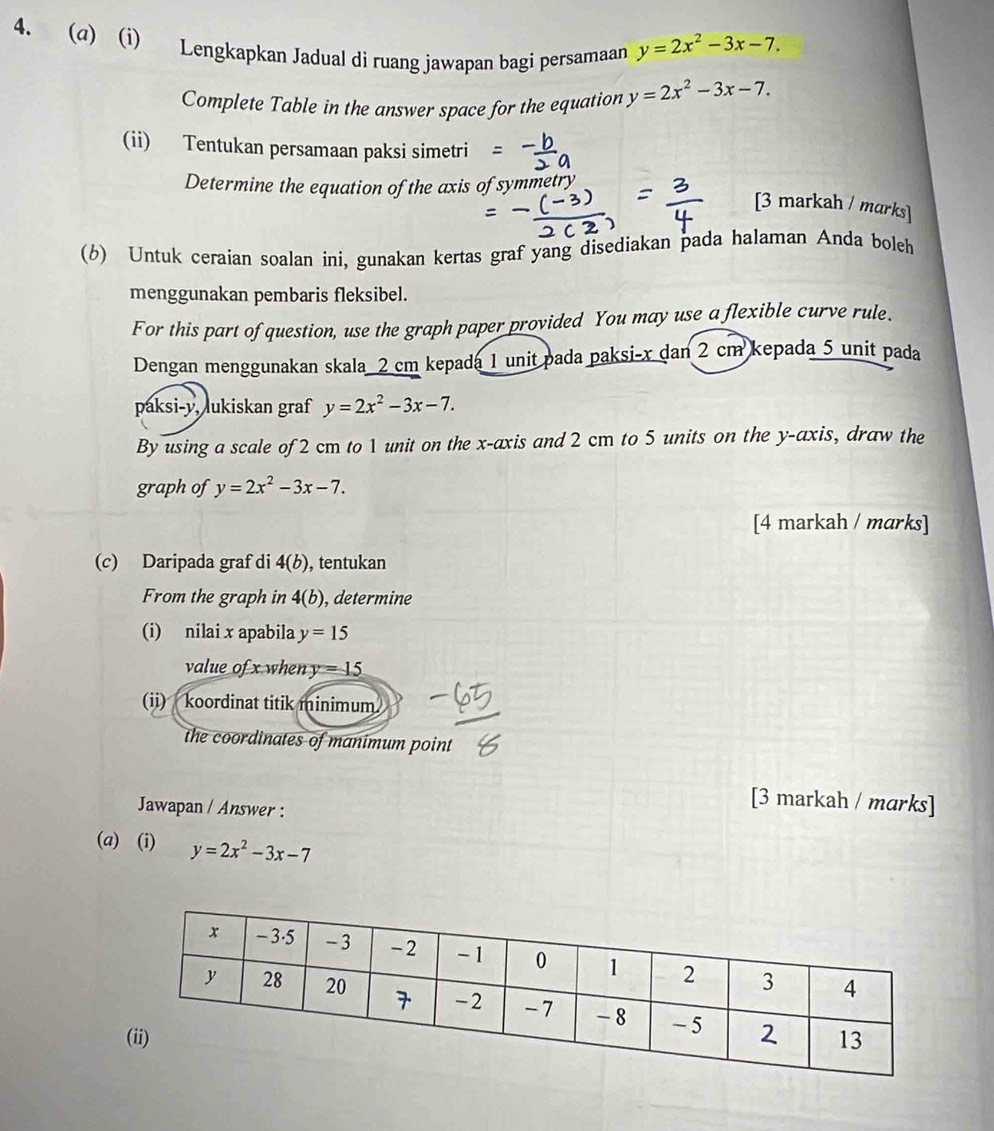 4. (a) (i) Lengkapkan Jadual di ruang jawapan bagi persamaan y = 2x² − 3x − 7.
Complete Table in the answer space for the equation y = 2x² − 3x − 7.
(ii) Tentukan persamaan paksi simetri = -b/2a
Determine the equation of the axis of symmetry
= -(-3)/2(2) = 3/4 [3 markah / marks]
(b) Untuk ceraian soalan ini, gunakan kertas graf yang disediakan pada halaman Anda boleh
menggunakan pembaris fleksibel.
For this part of question, use the graph paper provided You may use a flexible curve rule.
Dengan menggunakan skala 2 cm kepada 1 unit pada paksi-x dan 2 cm kepada 5 unit pada
paksi-y, lukiskan graf y = 2x² − 3x − 7.
By using a scale of 2 cm to 1 unit on the x-axis and 2 cm to 5 units on the y-axis, draw the
graph of y = 2x² − 3x − 7.
[4 markah / marks]
(c) Daripada graf di 4(b), tentukan
From the graph in 4(b), determine
(i) nilai x apabila y = 15
value of x when y = 15
(ii) koordinat titik minimum -65/8
the coordinates of manimum point
[3 markah / marks]
Jawapan / Answer :
(a) (i) y = 2x² − 3x − 7
x −3·5 −3 −2 −1 0 1 2 3 4
y 28 20 7 −2 −7 −8 −5 2 13
(ii)